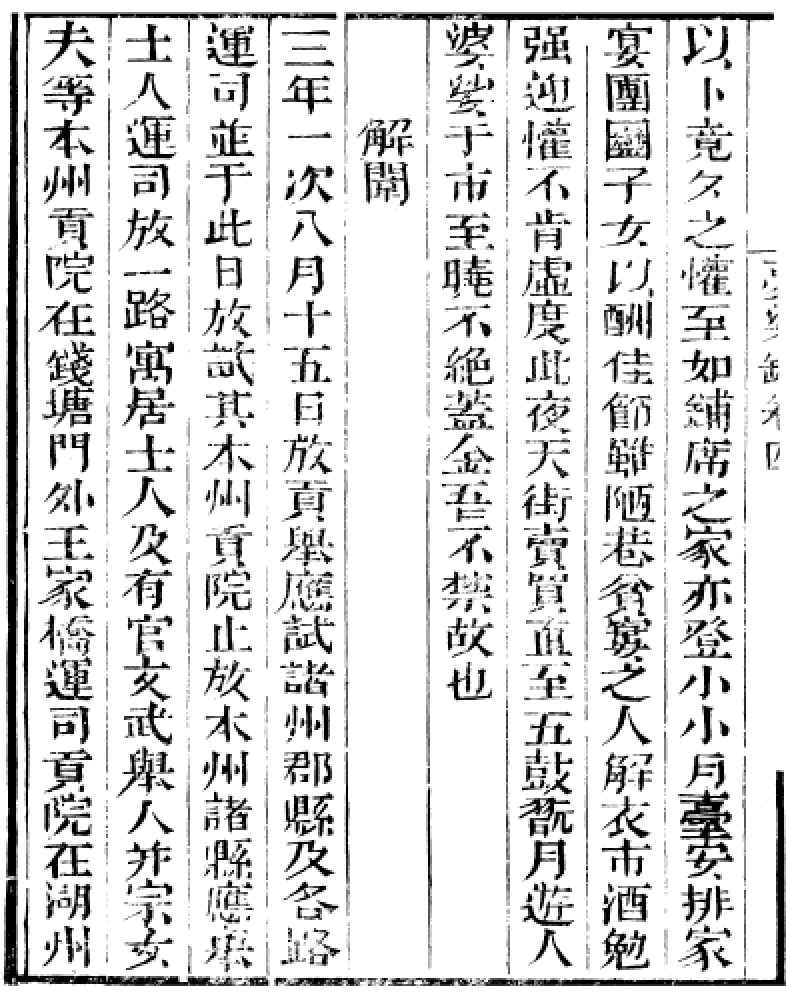 以卜竟夕之懽至如鋪席之家亦登小小月臺安排家
宴團圞子女以酬佳節雖陋巷貧窶之人解衣市酒勉
强迎懽不肯虛度此夜天街賣買直至五鼓翫月遊人
婆娑于市至曉不絕蓋金吾不禁故也
解闈
三年一次八月十五日放貢舉應試諸州郡縣及各路
運司並于此日放試其本州貢院止放本州諸縣應舉
士人運司放一路寓居士人及有官文武舉人并宗女
夫等本州貢院在錢塘門外王家橋運司貢院在湖州